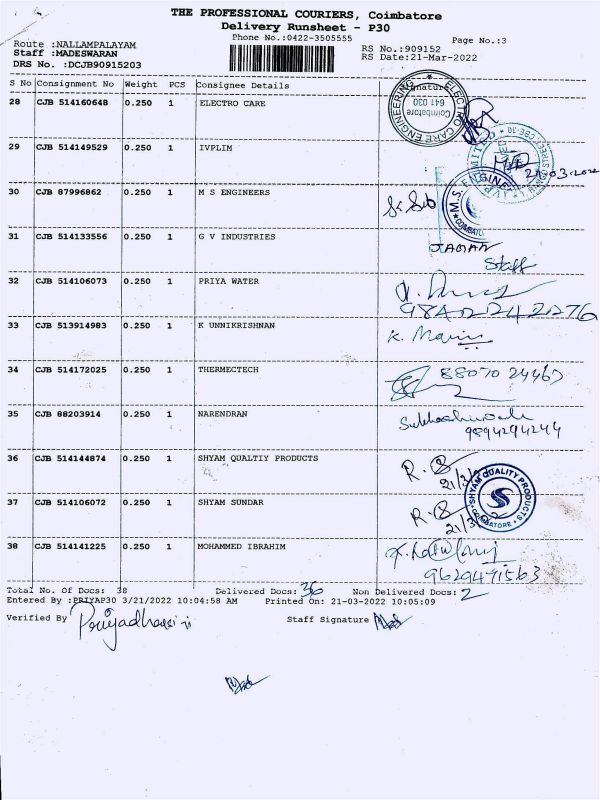 THE PROFESSIONAL COURIERS, Coimbatore
Delivery Runsheet - P30
Phone No.:0422-3505555
Page No.:3
Route :NALLAMPALAYAM
Staff :MADESWARAN
DRS No. :DCJB90915203
RS No.:909152
RS Date:21-Mar-2022
S No Consignment No Weight PCS Consignee Details Signature
28 CJB 514160648 0.250 1 ELECTRO CARE
ELECTRO CARE ENGINEERING Coimbatore 641 030
29 CJB 514149529 0.250 1 IVPLIM
21-03-2022
30 CJB 87996862 0.250 1 M S ENGINEERS
M.S. ENGINE
COIMBATO
31 CJB 514133556 0.250 1 G V INDUSTRIES
JAGAN
Staff
32 CJB 514106073 0.250 1 PRIYA WATER
33 CJB 513914983 0.250 1 K UNNIKRISHNAN
K.
34 CJB 514172025 0.250 1 THERMECTECH
88070 24467
35 CJB 88203914 0.250 1 NARENDRAN
9894294244
36 CJB 514144874 0.250 1 SHYAM QUALTIY PRODUCTS
R.
21/3/
SHYAM QUALITY PRODUCTS
COIMBATORE
37 CJB 514106072 0.250 1 SHYAM SUNDAR
R.
21/3/22
38 CJB 514141225 0.250 1 MOHAMMED IBRAHIM
9629491563
Total No. Of Docs: 38 Delivered Docs: 36 Non Delivered Docs: 2
Entered By :PRIYAP30 3/21/2022 10:04:58 AM Printed On: 21-03-2022 10:05:09
Verified By Priyadharsini Staff Signature